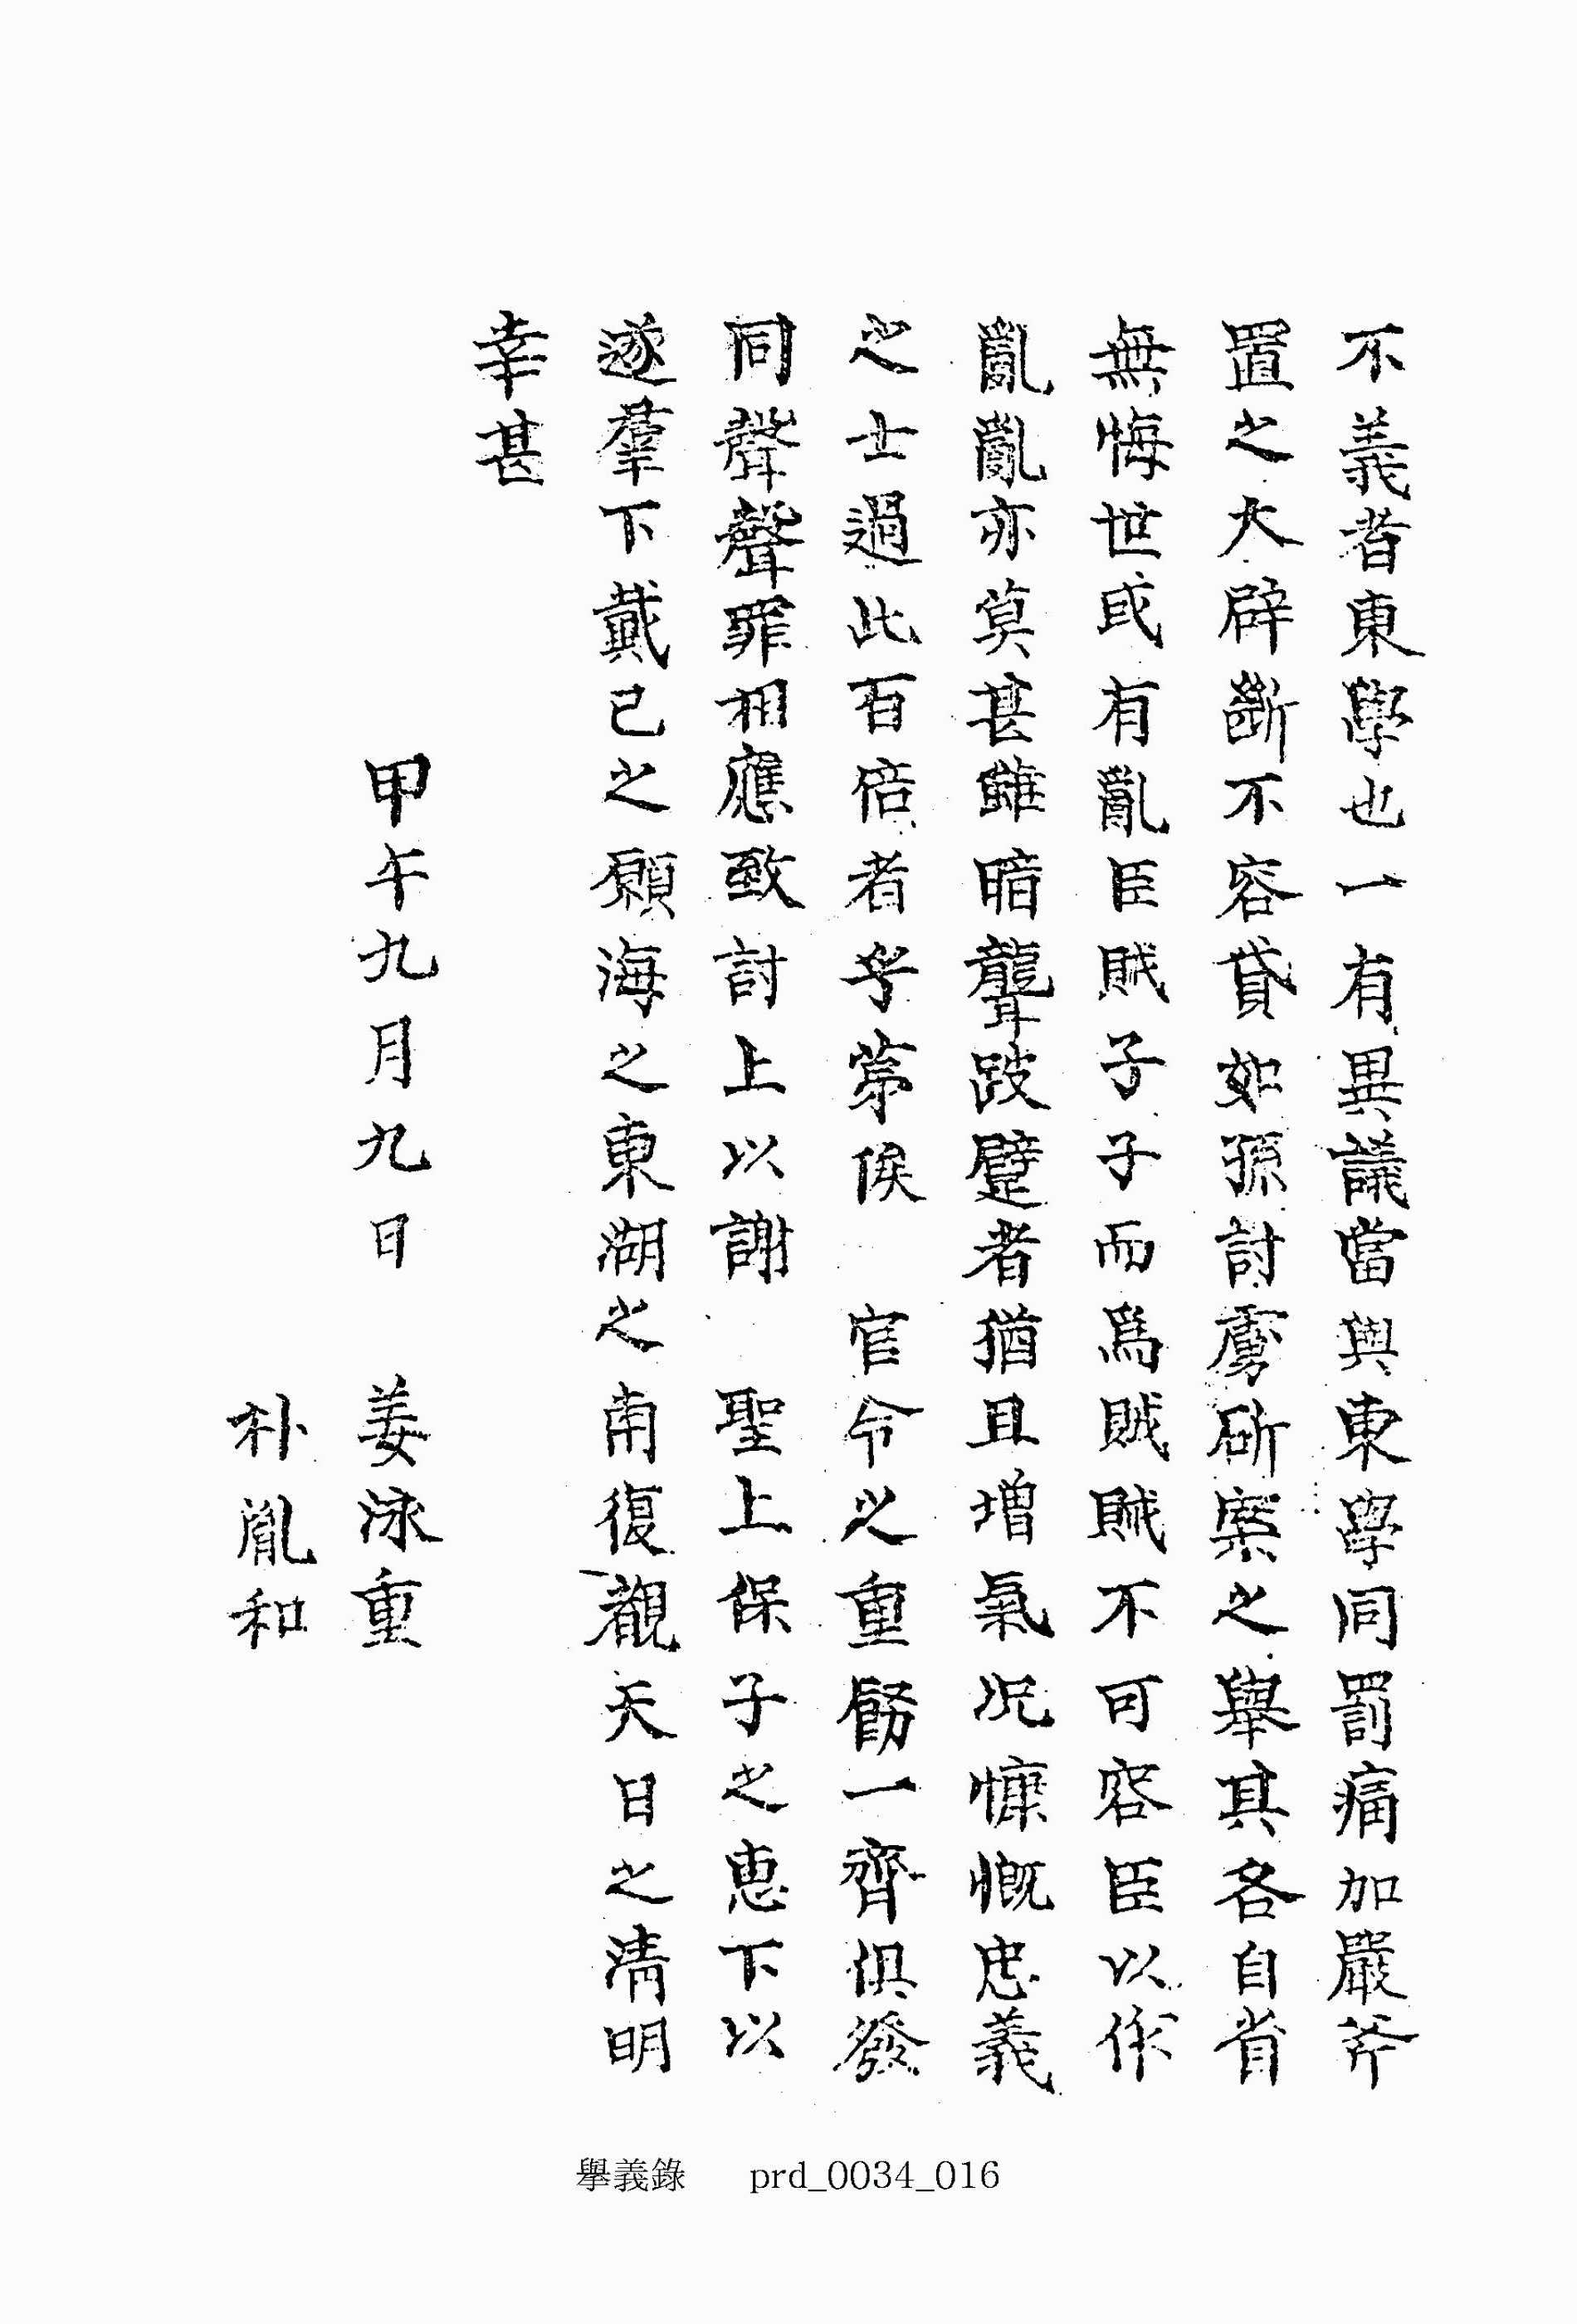 不義者東學也一有異議當與東學同罰痛加嚴斧
置之大辟斷不容貸如孫討虜斫案之擧其各自省
無悔世或有亂臣賊子子而爲賊賊不可容臣以作
亂亂亦莫甚雖暗聾跛躄者猶且增氣况慷慨忠義
之士過此百倍者乎第俟 官令之重飭一齊俱發
同聲聲罪相應致討上以謝 聖上保子之惠下以
遂羣下戴己之願海之東湖之南復覩天日之淸明
幸甚
甲午九月九日 姜泳重
朴胤和
擧義錄 prd_0034_016